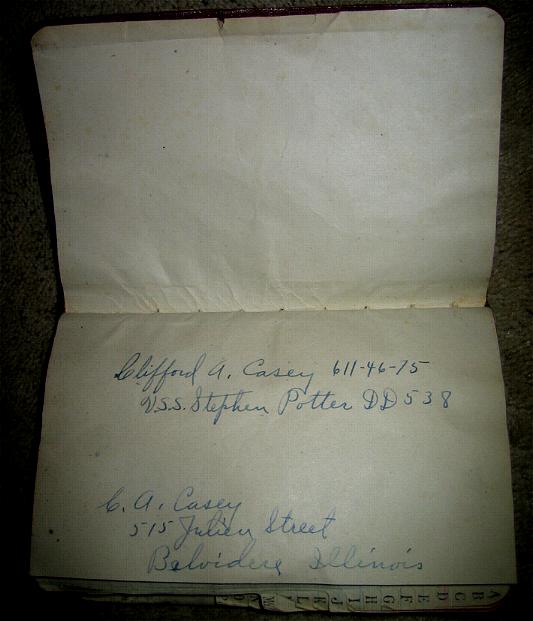 Clifford A. Casey 611-46-75
U.S.S. Stephen Potter DD538
C. A. Casey
515 Julien Street
Belvidere Illinois
A B C D E F G H I J K L